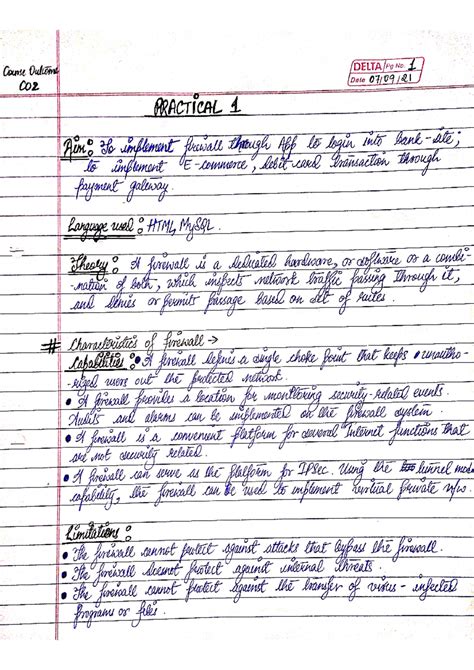 Course Outcome
CO2
DELTA Pg No. 1
Date 07/09/21
PRACTICAL 1
Aim: To implement firewall through App to login into bank-site,
to implement E-commerce, debit card transaction through
payment gateway.
Language used: HTML, MySQL.
Theory: A firewall is a dedicated hardware, or software or a combi-
nation of both, which inspects network traffic passing through it,
and denies or permit passage based on set of rules.
# Characteristics of firewall →
Capabilities: • A firewall defines a single choke point that keeps unautho-
rized users out the protected network.
• A firewall provides a location for monitoring security-related events.
Audits and alarms can be implemented on the firewall system.
• A firewall is a convenient platform for several Internet functions that
are not security related.
• A firewall can serve as the platform for IPSec. Using the tunnel mode
capability, the firewall can be used to implement virtual private n/w.
Limitations:
• The firewall cannot protect against attacks that bypass the firewall.
• The firewall doesnot protect against internal threats.
• The firewall cannot protect against the transfer of virus-infected
programs or files.